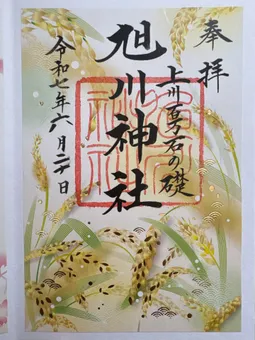 奉拝
上川百万石の礎
旭川神社
令和七年六月二十日